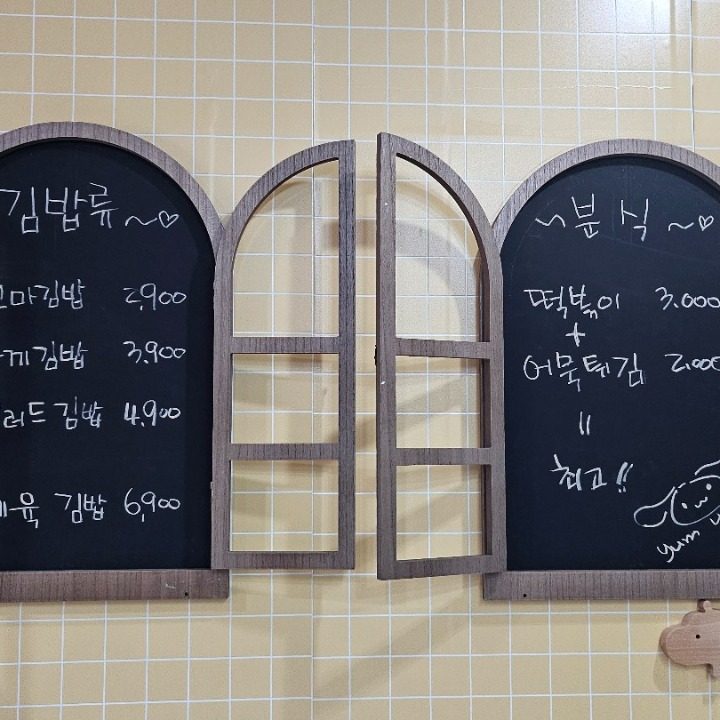 김밥류 ~♡
꼬마김밥 2,900
김밥 3,900
러드김밥 4,900
제육 김밥 6,900
~분식~♡
떡볶이 3,000
+
어묵튀김 2,000
=
최고!!
yum